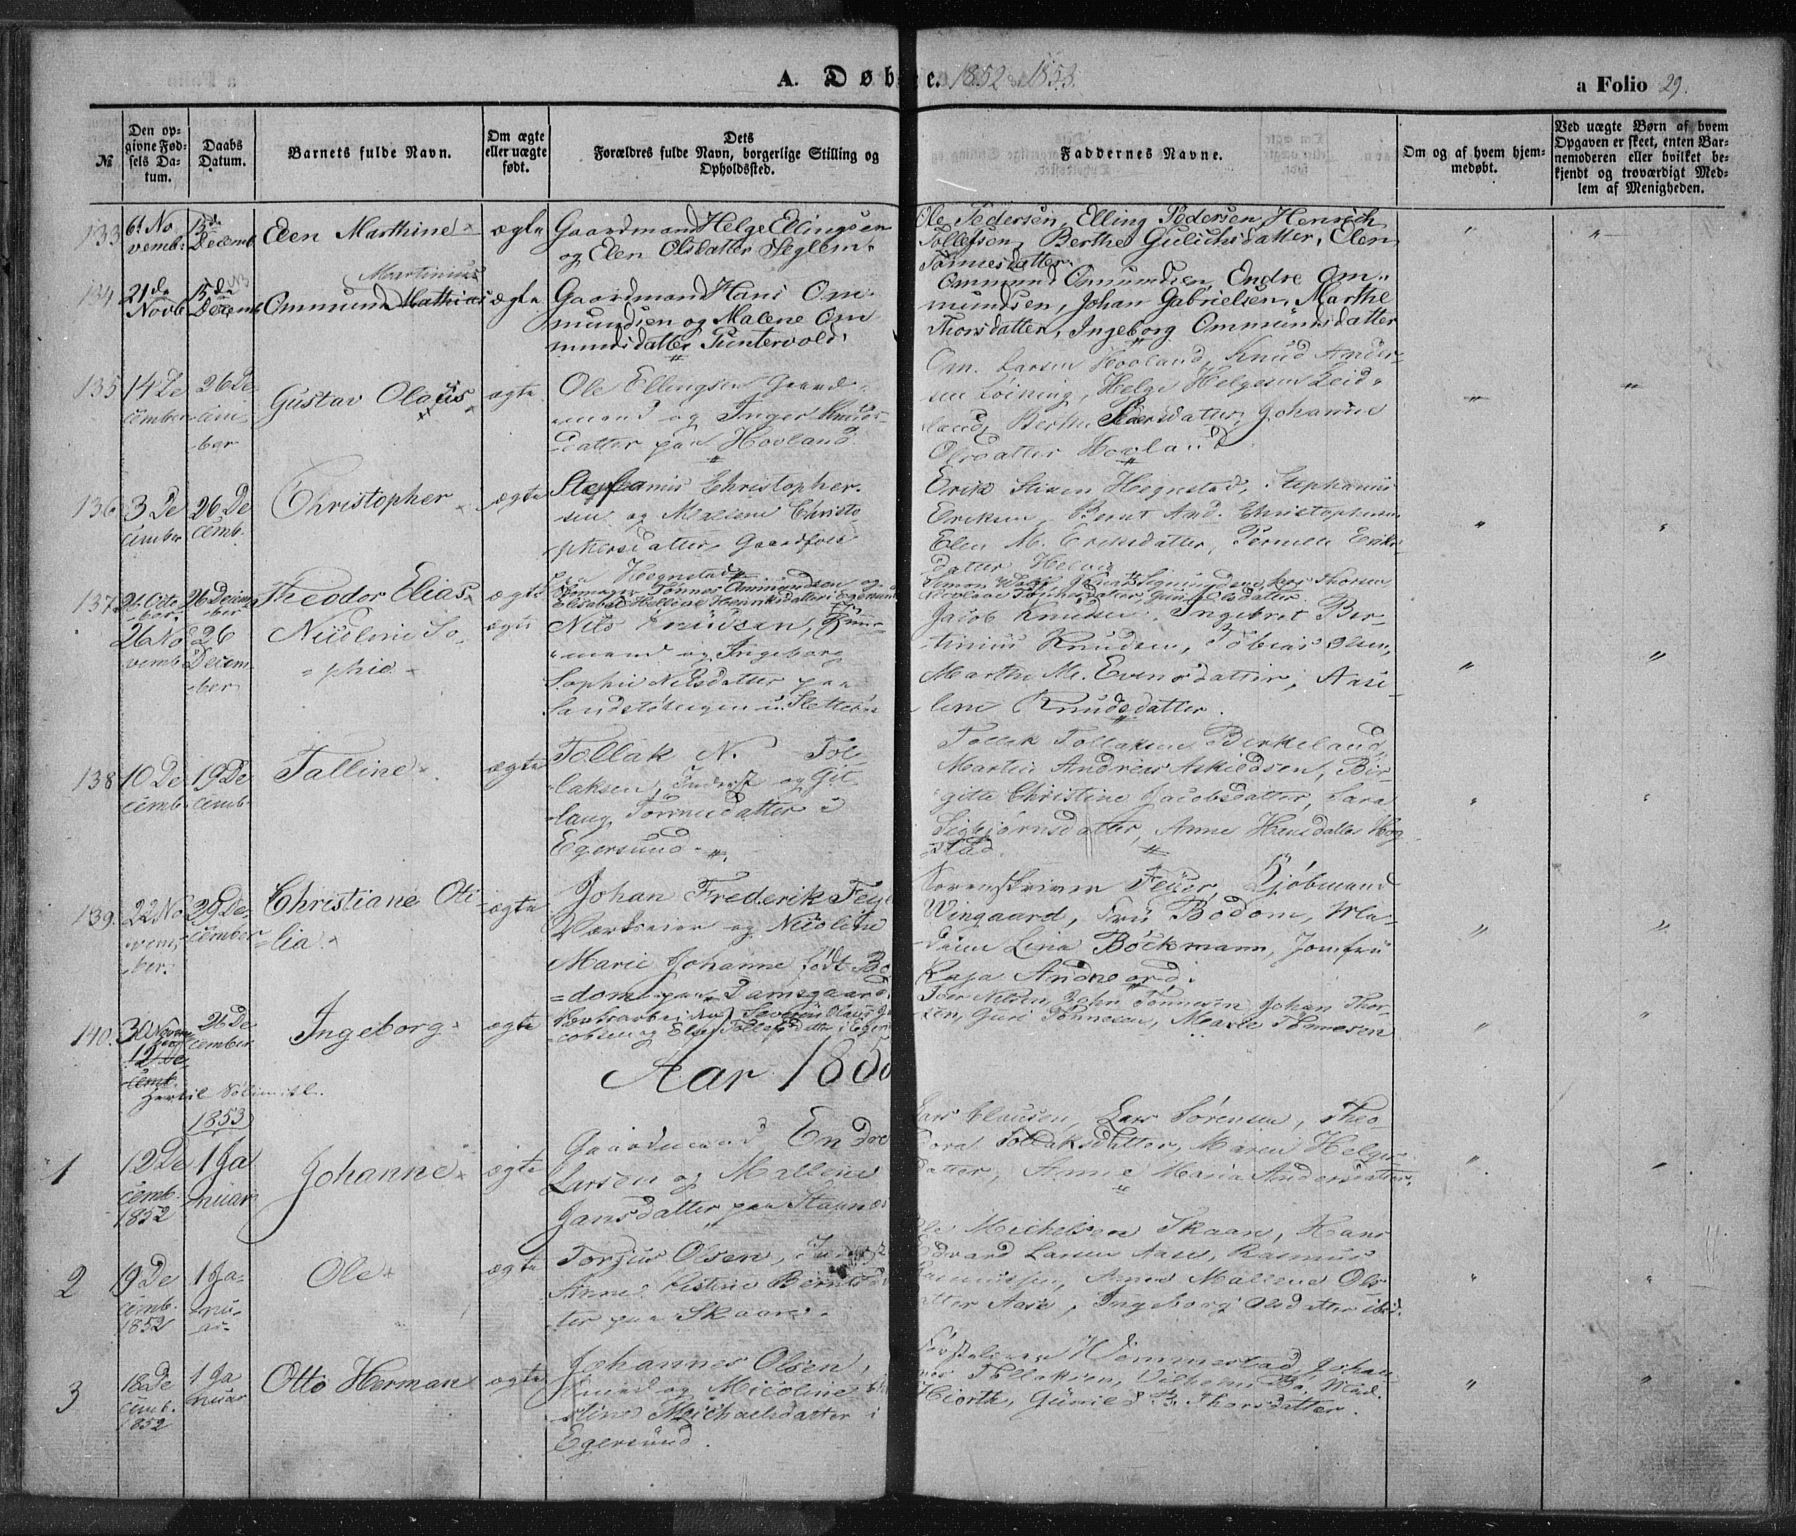 A. Døbte. 1852. 1853.
a Folio 29.
№
Den opgivne Fødsels Datum.
Daabs Datum.
Barnets fulde Navn.
Om ægte eller uægte født.
Dets Forældres fulde Navn, borgerlige Stilling og Opholdssted.
Faddernes Navne.
Om og af hvem hjemmedøbt.
Ved uægte Børn af hvem Opgaven er skeet, enten Barnemoderen eller hvilket bekjendt og troværdigt Medlem af Menigheden.
133
6t No
vemb:
Decemb
Elen Marthine
ægte
Gaardmand Helge Ellingsen
og Elen Olsdatter Seglem.
Ole Pedersen, Elling Pedersen, Henrich
Tollefsen, Berthe Gulichsdatter, Elen
Tønnesdatter.
134
21de
Novb
Decemb
Martinius
Ommund Mathias
ægte
Gaardmand Hans Om-
mundsen og Malene Om
mundsdatter Puntervold.
Ommund Ommundsen, Endre Om-
mundsen, Johan Gabrielsen, Marthe
Thorsdatter, Ingeborg Ommundsdatter
135
14 De
cember
26 De
cem
ber
Gustav Olaus
ægte
Ole Ellingsen Gaard-
mand og Inger Knuds-
datter paa Hovland
Om. Larsen Hovland, Knud Ander-
sen Løining, Helge Helgesen Leid-
land, Berthe Larsdatter, Johanne
Olsdatter Hovland
136
3 De
cember
26 De
cemb.
Christopher
ægte
Stephanus Christopher
sen og Mallene Christo-
phersdatter, Gaardfolk
paa Hegnstad
Erik Hegnstad, Stephanus
Eriksen, Bernt And. Christophersen
Elen M. Eriksdatter, Eriks-
datter
137
21 Octo
ber.
26 Decem
ber
Theodor Elias
ægte
Tønnes Ommundsen og
Elisabeth Helene Henriksdatter i Egersund
Simon Lars Thorsen
Nicolae Tønnesdatter, Guri Olsdatter
26 No
vemb
26
Decem-
ber
Nicoline So-
phie
ægte
Nils Knudsen, Huus-
mand og Ingeborg
Sophie Nilsdatter paa
Jacob Knudsen, Ingebret Ber-
tinius Knudsen, Tobias Olsen,
Marthe M. Evensdatter, Aase-
lene Knudsdatter.
138
10 De
cemb
19 De
cemb
Talline
ægte
Tollak N. Tol-
laksen, Inderst og Git
laug Tønnesdatter i
Egersund
Tollak Tollaksen Birkeland,
Martin Andreas Askildsen, Bir-
gitte Christine Jacobsdatter, Sara
Sigbjørnsdatter, Anne Hansdatter Hog
stad.
139.
22 No
vem
ber.
29 De
cember
Christiane Oti-
lia
ægte
Johan Frederik Feyer
Værkseier og Nicoline
Marie Johanne født Bo
dom paa Damsgaard
Sorenskriver Feyer, Kjøbmand
Wingaard, Fru Bodom, Ma-
dam Lina Bøckmann, Jomfru
Kaja
140.
30 Novem
ber
12 De
cemb.
26 De
cember
Ingeborg
ægte
Severin Olaus Ja
cobsen og Else Tollefsdatter i Egersund
Peder Nilsen, John Tønnesen, Johan Thor-
sen, Guri Tønnesen, Marie Tønnesen
Aar 1853
1853
1
12 De
cemb.
1852
1 Ja
nuar
Johanne
ægte
Gaardmand Endre
Larsen og Mallene
Jansdatter paa
Lars Clausen, Lars Sørensen, Theo
dora Tollaksdatter, Maren Helges
datter, Anne Maria Andersdatter.
2
9 De
cemb.
1852
1 Ja-
nu-
ar
Ole
ægte
Torjus Olsen, Inderst
Anne Kistine Berntsdat
ter paa Skaare.
Ole Michelsen Skaare, Hans
Edvard Larsen Aase, Rasmus
Rasmussen, Anne Mallene Ols-
datter Aase, Ingeborg Olsdatter ibid.
3
18 De
cemb.
1852
1 Ja
nuar
Otto Herman
ægte
Johannes Olsen,
Smed og Nicoline
stine Michaelsdatter i
Egersund.
Wemmestad, Johan
nes Tollaksen, Vilhelm Bø, Mad.
Hiorth, Gunild B. Thorsdatter.